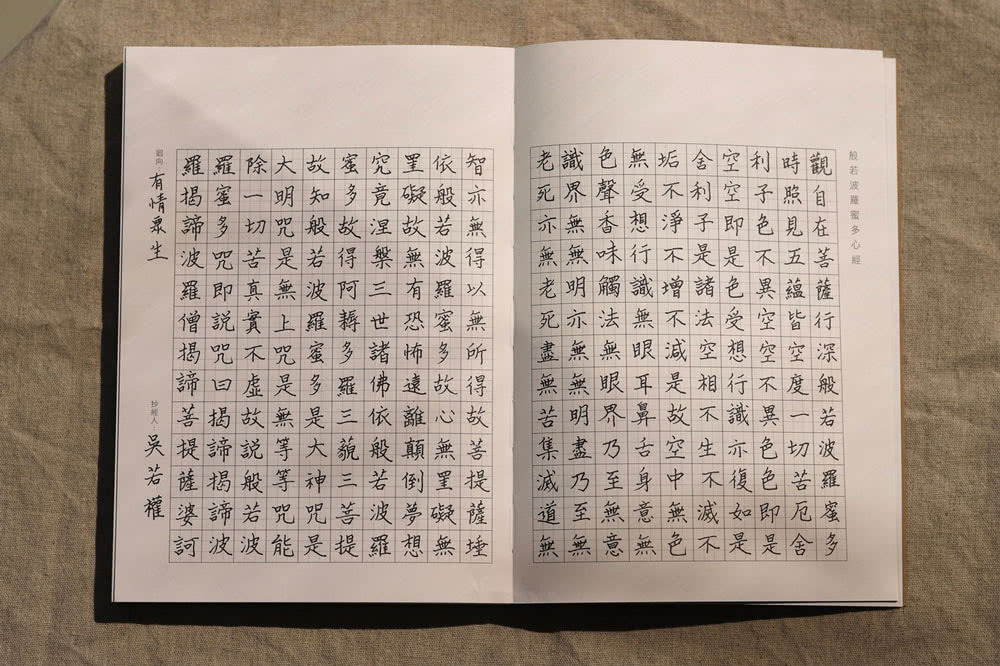 般若波羅蜜多心經
觀自在菩薩行深般若波羅蜜多
時照見五蘊皆空度一切苦厄舍
利子色不異空空不異色色即是
空空即是色受想行識亦復如是
舍利子是諸法空相不生不滅不
垢不淨不增不減是故空中無色
無受想行識無眼耳鼻舌身意無
色聲香味觸法無眼界乃至無意
識界無無明亦無無明盡乃至無
老死亦無老死盡無苦集滅道無
智亦無得以無所得故菩提薩埵
依般若波羅蜜多故心無罣礙無
罣礙故無有恐怖遠離顛倒夢想
究竟涅槃三世諸佛依般若波羅
蜜多故得阿耨多羅三藐三菩提
故知般若波羅蜜多是大神咒是
大明咒是無上咒是無等等咒能
除一切苦真實不虛故說般若波
羅蜜多咒即說咒曰揭諦揭諦波
羅揭諦波羅僧揭諦菩提薩婆訶
迴向：有情眾生
抄經人：吳若權